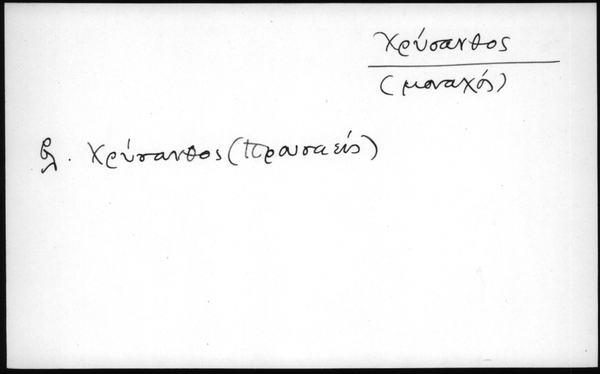 Χρύσανθος
(μοναχός)
βλ. Χρύσανθος